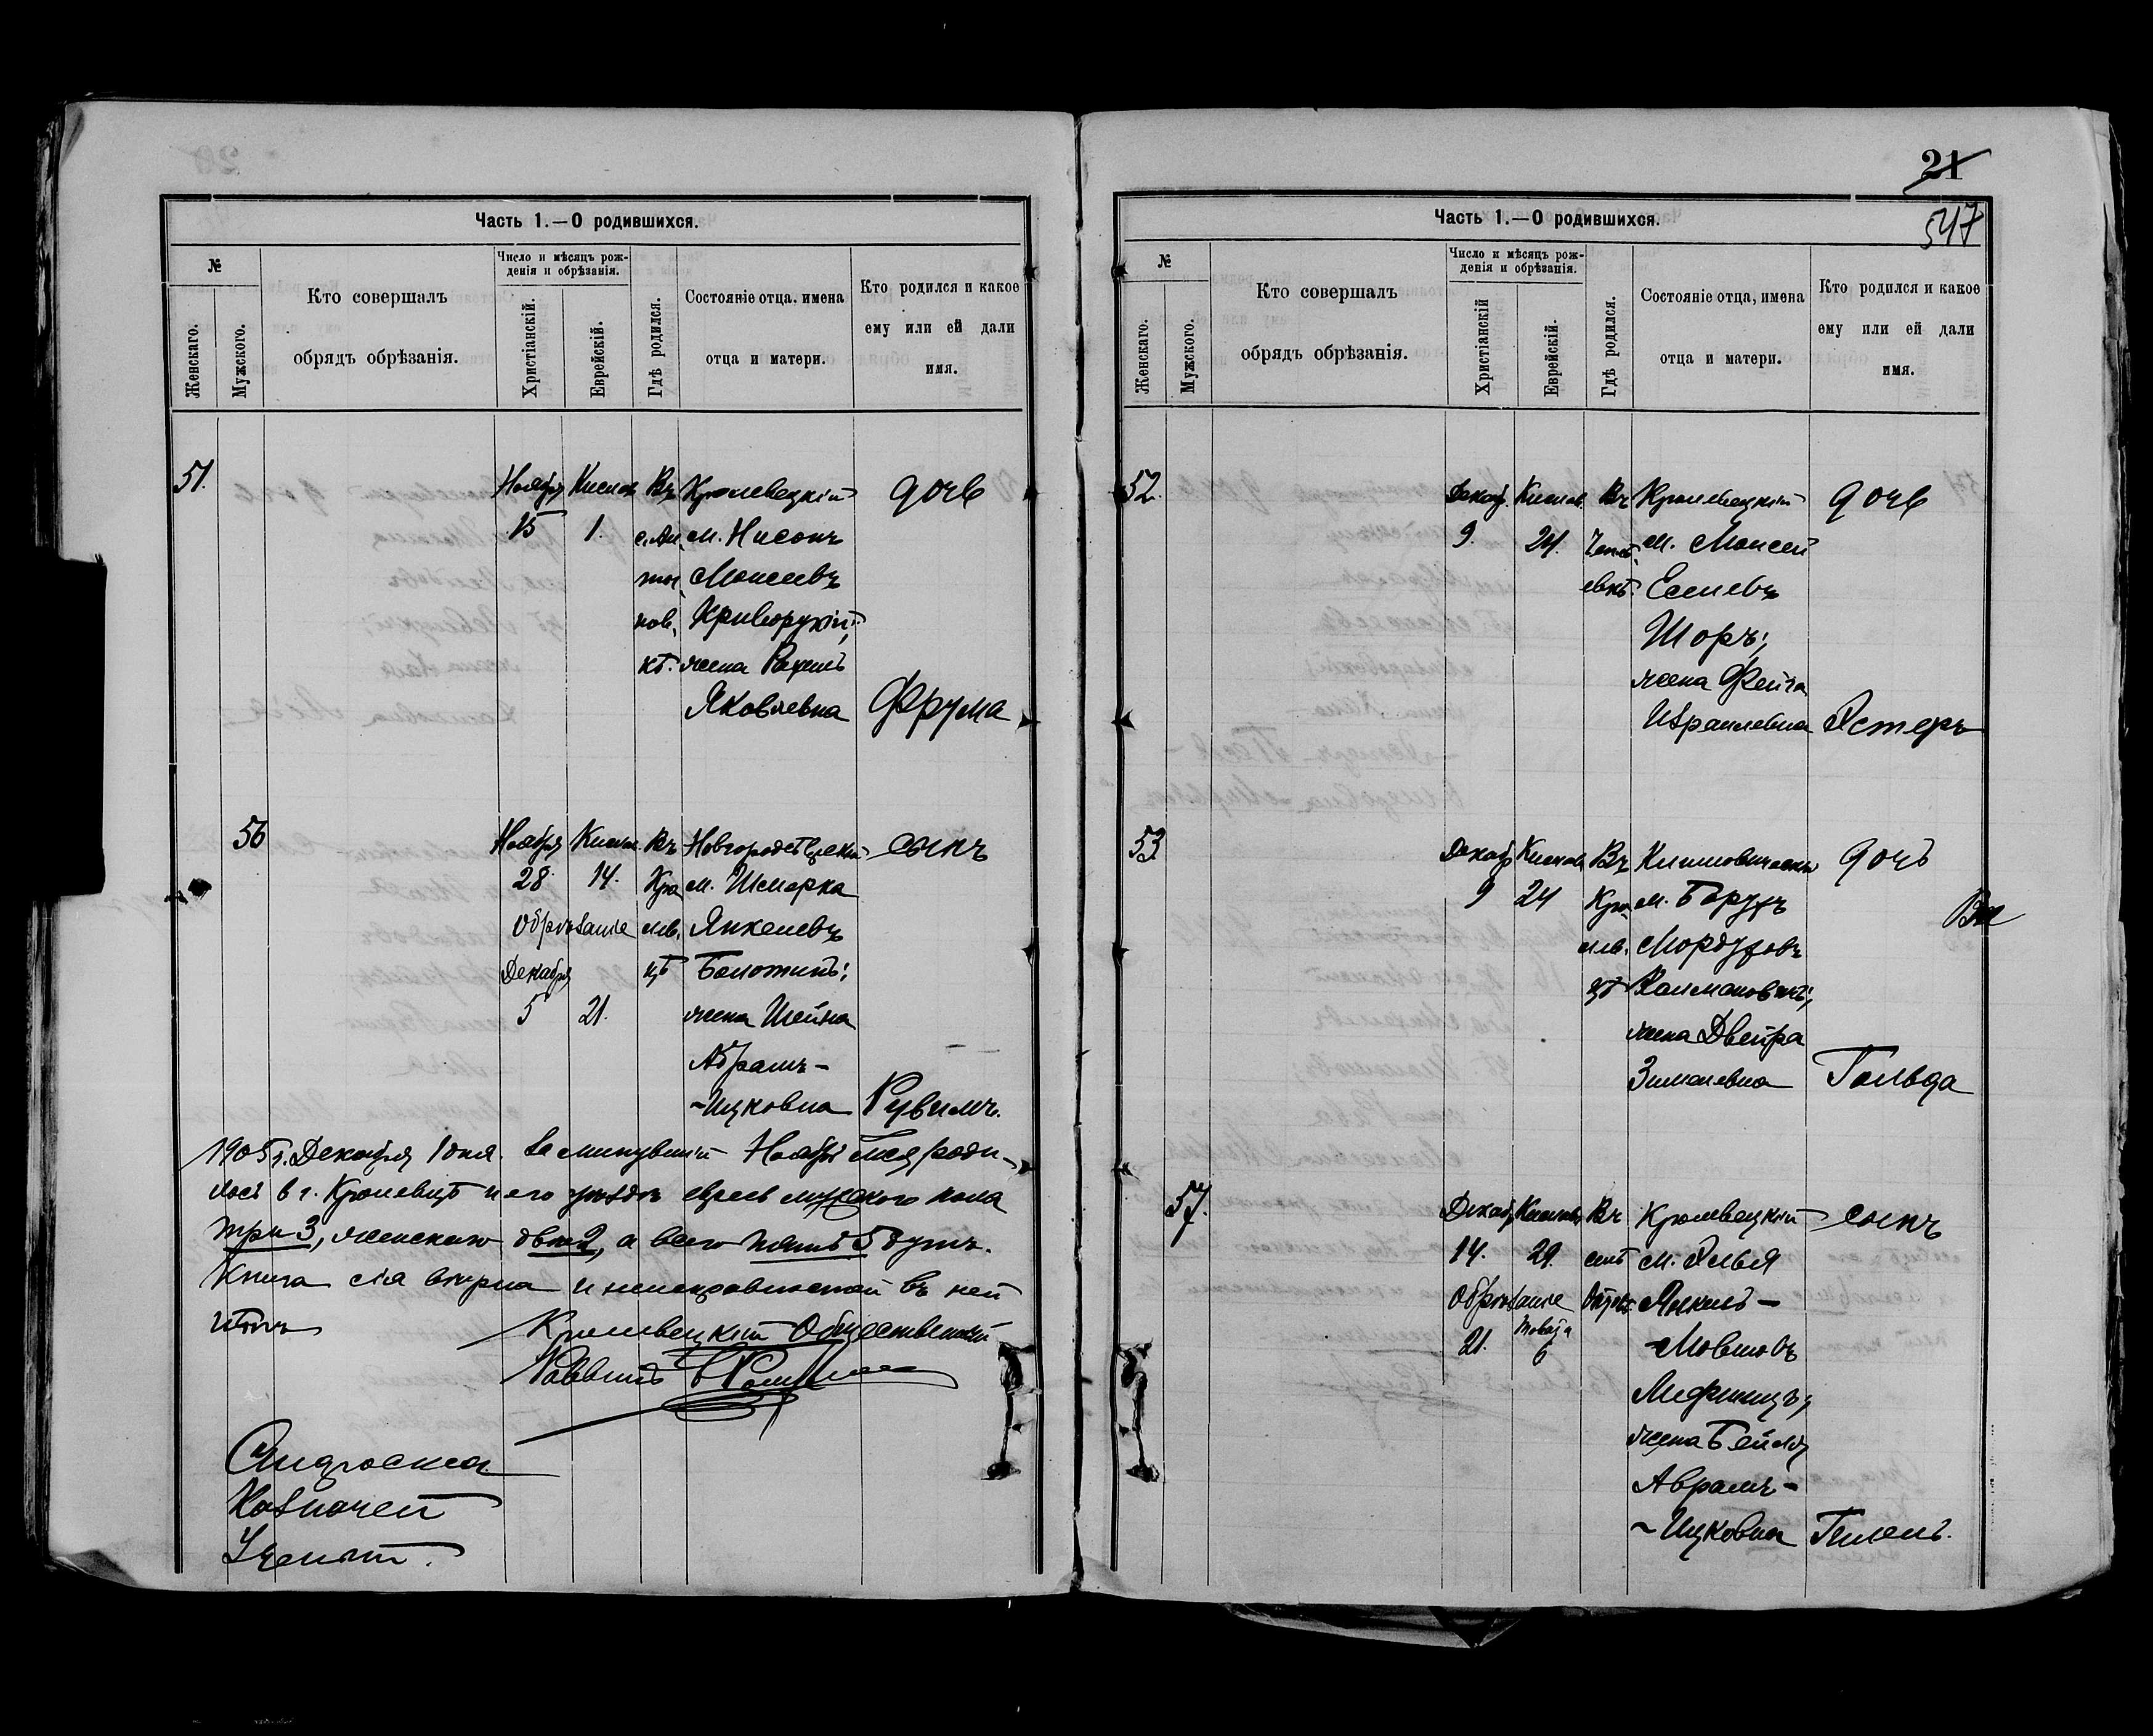 Часть 1.—О родившихся.
№
Женскаго.
Мужского.
Кто совершалъ
обрядъ обрѣзанія.
Число и мѣсяцъ рож-
денія и обрѣзанія.
Христіанскій.
Еврейскій.
Гдѣ родился.
Состояніе отца, имена
отца и матери.
Кто родился и какое
ему или ей дали
имя.
51. Ноября Кислев Въ Кролевецкій дочь
15 1. с. Ан- м. Нисонъ
тон Моисеевъ
нов, Криворукій;
кѣ. жена Рахиль
Яковлевна Фрума
56 Ноября Кислев Въ Новгородсѣверскій сынъ
28. 14. Кро м. Шмерка
Обрѣзаніе лев, Янкелевъ
Декабря цѣ Болотинъ;
5 21. жена Шейна
Абрамъ-
-Ицковна Рувимъ.
1905 г. Декабря 1 дня. За минувшій Ноябрь м-ця роди-
лось в г. Кролевцѣ и его уѣздѣ евреев мужского пола
три 3, женскаго двѣ 2, а всего пять 5 душъ.
Книга сія вѣрна и неисправностей въ ней
нѣтъ
Кролевецкій Общественный
Раввинъ
Казначей
21
547
Часть 1.—О родившихся.
№
Женскаго.
Мужского.
Кто совершалъ
обрядъ обрѣзанія.
Число и мѣсяцъ рож-
денія и обрѣзанія.
Христіанскій
Еврейскій.
Гдѣ родился.
Состояніе отца, имена
отца и матери.
Кто родился и какое
ему или ей дали
имя.
52. Декаб. Кислев. Въ Кролевецкій дочь
9. 24. м. Моисей
евкѣ.
Шоръ;
жена Фейга
Израилевна Эстеръ
53 Декабр Кислев Въ дочь
9 24 Кро- м. Борухъ
лев. Мордуховъ
цѣ Калмановичъ;
жена Двейра
Зималевна Гольда
57. Декаб. Кислев. Въ Кролевецкій сынъ
14. 29. м. Элья
Обрѣзаніе Янкель-
21. Тевета 6 -Мовшовъ
жена Бейля
Аврамъ-
-Ицковна